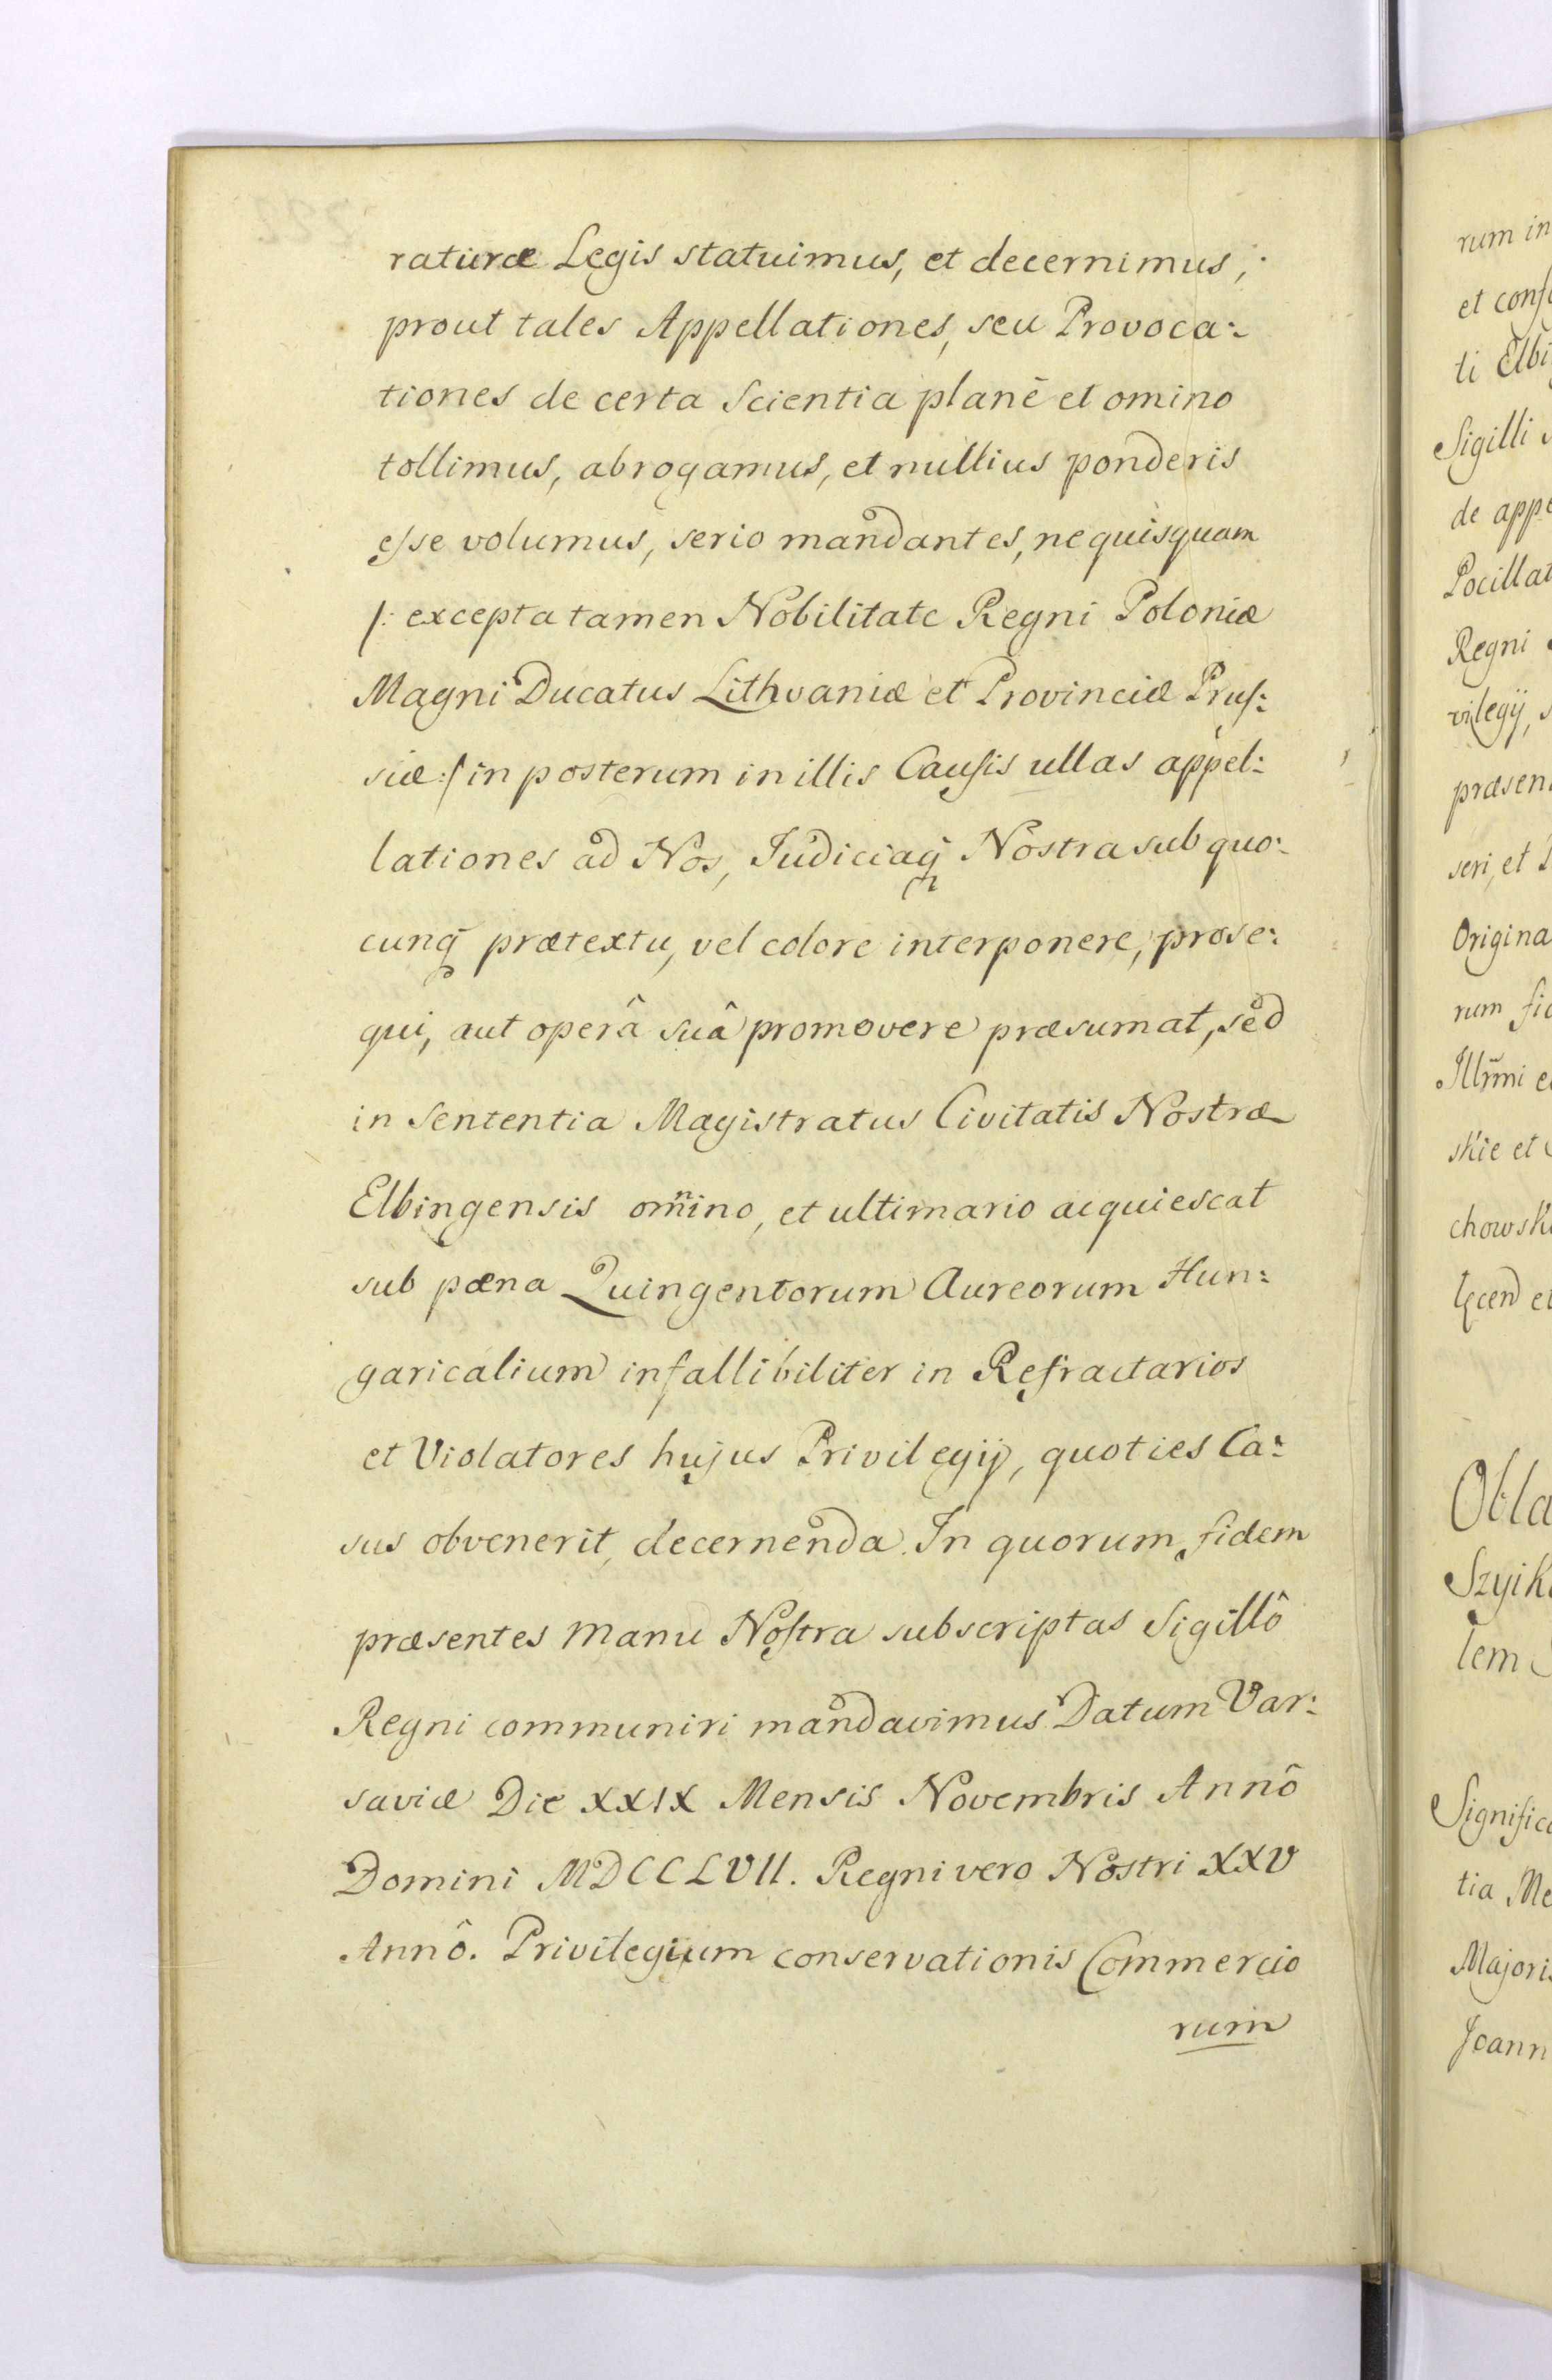 raturæ Legis statuimus, et decernimus,
prout tales Appellationes, seu Provoca:
tiones de certa Scientia planè et omino
tollimus, abrogamus, et nullius ponderis
eſse volumus, serio mandantes, ne quisquam
/: excepta tamen Nobilitate Regni Poloniæ
Magni Ducatus Lithvaniæ et Provinciæ Pruſ:
siæ :/ in posterum in illis Cauſis ullas appel:
lationes ad Nos, Judiciaq̃ Nostra sub quo:
cunq̃ prætextu, vel colore interponere, prose:
qui, aut operâ suâ promovere præsumat, sed
in Sententia Magistratus Civitatis Nostræ
Elbingensis om̃ino, et ultimario acquiescat
sub pæna Quingentorum Aureorum Hun:
garicalium infallibiliter in Refractarios
et Violatores hujus Privilegij, quoties Ca:
sus obvenerit, decernenda. In quorum fidem
præsentes Manu Noſtra subscriptas Sigillô
Regni communiri mandavimus Datum Var:
saviæ Die XXIX Mensis Novembris Annô
Domini MDCCLVII. Regni vero Nostri XXV
Annô. Privilegium conservationis Commercio
rum
rum in
et conf
ti Elbi
Sigilli
de appe
Pocillat
Regni
vilegij,
præsen
seri, et
Origina
rum fid
Illr̃mi e
skie et
chowsk
et
Obla
Szyik
tem
Signific
tia Me
Majori
Joann